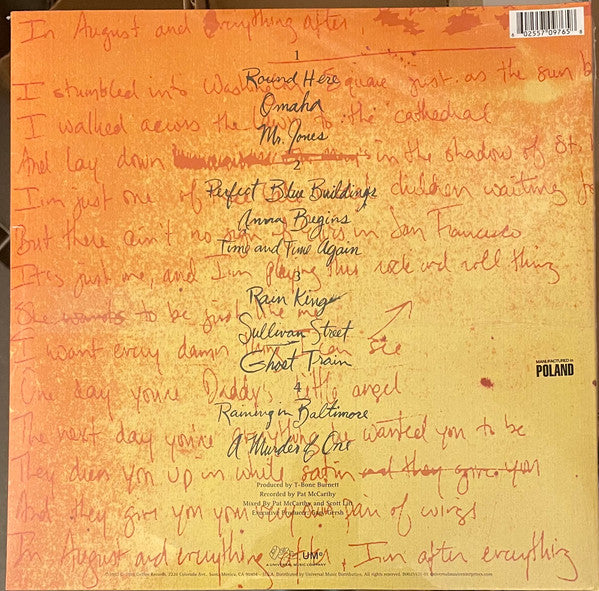 In August and everything after,
6 02557 09765 8
1
I stumbled into Washington Square just as the sun b
Round Here
Omaha
I walked across the lawn to the cathedral
Mr. Jones
And lay down in the shadow of St.
2
I'm just one of children waiting fo
Perfect Blue Buildings
Anna Begins
But there ain't no in San Francisco
Time and Time Again
It's just me, and I'm playing this rock and roll thing
3
Rain King
She wants to be just like me
Sullivan Street
I want every damn thing I can see
Ghost Train
MANUFACTURED IN
POLAND
One day you're Daddy's little angel
4
Raining in Baltimore
The next day you're everything he wanted you to be
A Murder of One
They dress you up in white satin and they give you
Produced by T-Bone Burnett
Recorded by Pat McCarthy
they give you your very own pair of wings
Mixed By Pat McCarthy and Scott Litt
Executive Producer: Gary Gersh
In August and everything after, I'm after everything
UMe
A UNIVERSAL MUSIC COMPANY
Geffen Records, 2220 Colorado Ave., Santa Monica, CA 90404 - U.S.A. Distributed by Universal Music Distribution. All rights reserved.